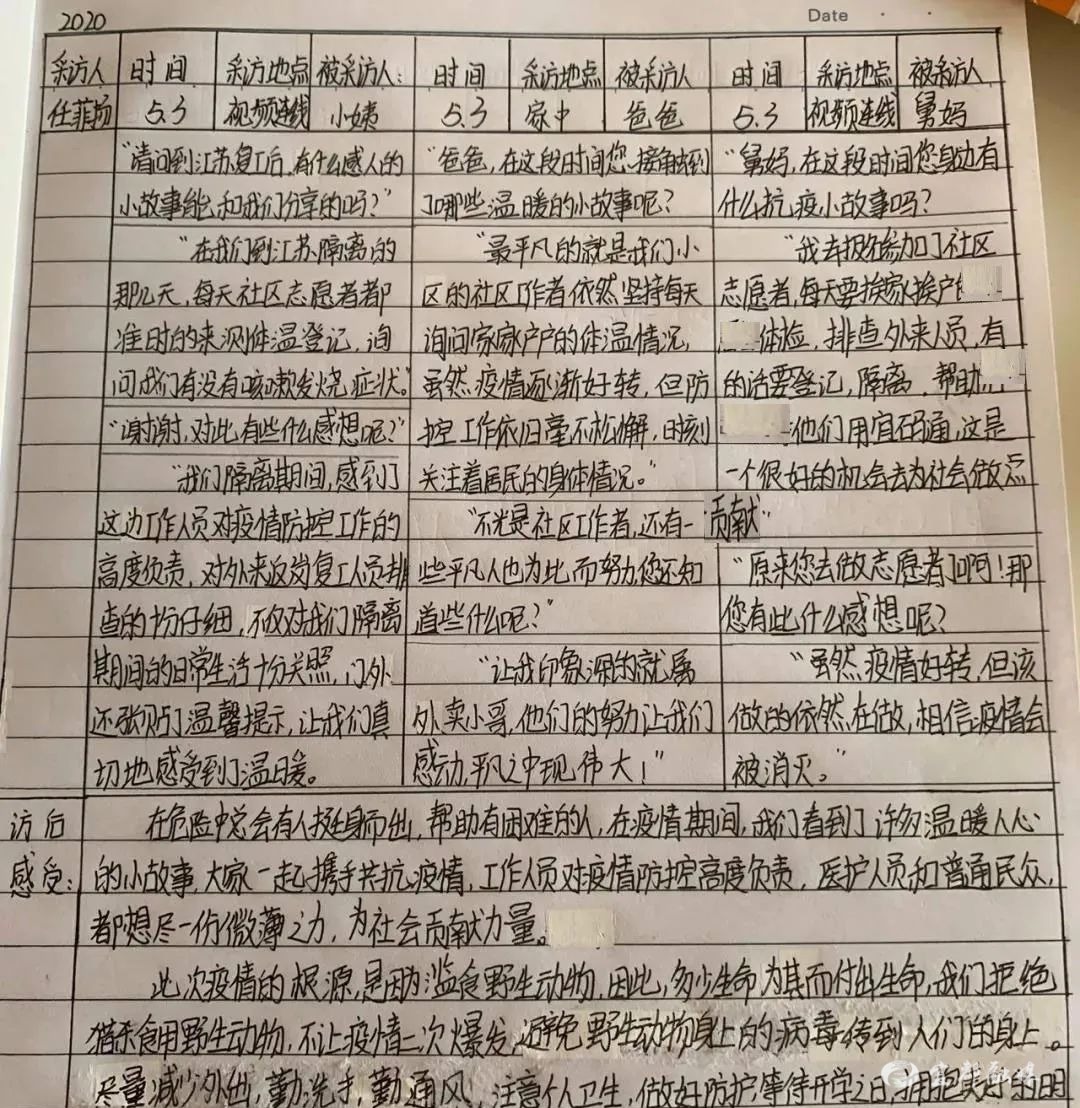 2020
Date
采访人 时间 采访地点 被采访人: 时间 采访地点 被采访人 时间 采访地点 被采访人
任菲扬 5.3 视频连线 小姨 5.3 家中 爸爸 5.3 视频连线 舅妈
“请问到江苏复工后,有什么感人的
小故事能和我们分享的吗?”
“在我们到江苏隔离的
那几天,每天社区志愿者都
准时的来测体温登记,询
问我们有没有咳嗽发烧症状。”
“谢谢,对此有些什么感想呢?”
“我们隔离期间,感到了
这边工作人员对疫情防控工作的
高度负责,对外来返岗复工人员排
查的十分仔细,不仅对我们隔离
期间的日常生活十分关照,门外
还张贴了温馨提示,让我们真
切地感受到了温暖。
“爸爸,在这段时间您接触到
了哪些温暖的小故事呢?
“最平凡的就是我们小
区的社区工作者依然坚持每天
询问家家户户的体温情况,
虽然疫情逐渐好转,但防
控工作依旧毫不松懈,时刻
关注着居民的身体情况。”
“不光是社区工作者,还有一
些平凡人也为此而努力,您还知
道些什么呢?”
“让我印象深的就属
外卖小哥,他们的努力让我们
感动,平凡之中现伟大!”
“舅妈,在这段时间您身边有
什么抗疫小故事吗?
“我去报名参加了社区
志愿者,每天要挨家挨户
体检,排查外来人员,有
的话要登记,隔离。帮助
他们用宜码通,这是
一个很好的机会去为社会做点
贡献”
“原来您去做志愿者了啊!那
您有些什么感想呢?
“虽然疫情好转,但该
做的依然在做,相信疫情会
被消灭。”
访后
感受:
在危险中总会有人挺身而出,帮助有困难的人,在疫情期间,我们看到了许多温暖人心
的小故事,大家一起携手共抗疫情,工作人员对疫情防控高度负责,医护人员和普通民众,
都想尽一份微薄之力,为社会贡献力量。
此次疫情的根源,是因为滥食野生动物,因此,多少生命为其而付出生命,我们拒绝
猎杀食用野生动物,不让疫情二次爆发,避免野生动物身上的病毒传到人们的身上。
尽量减少外出,勤洗手,勤通风,注意个人卫生,做好防护,等待开学之日,拥抱美好的明